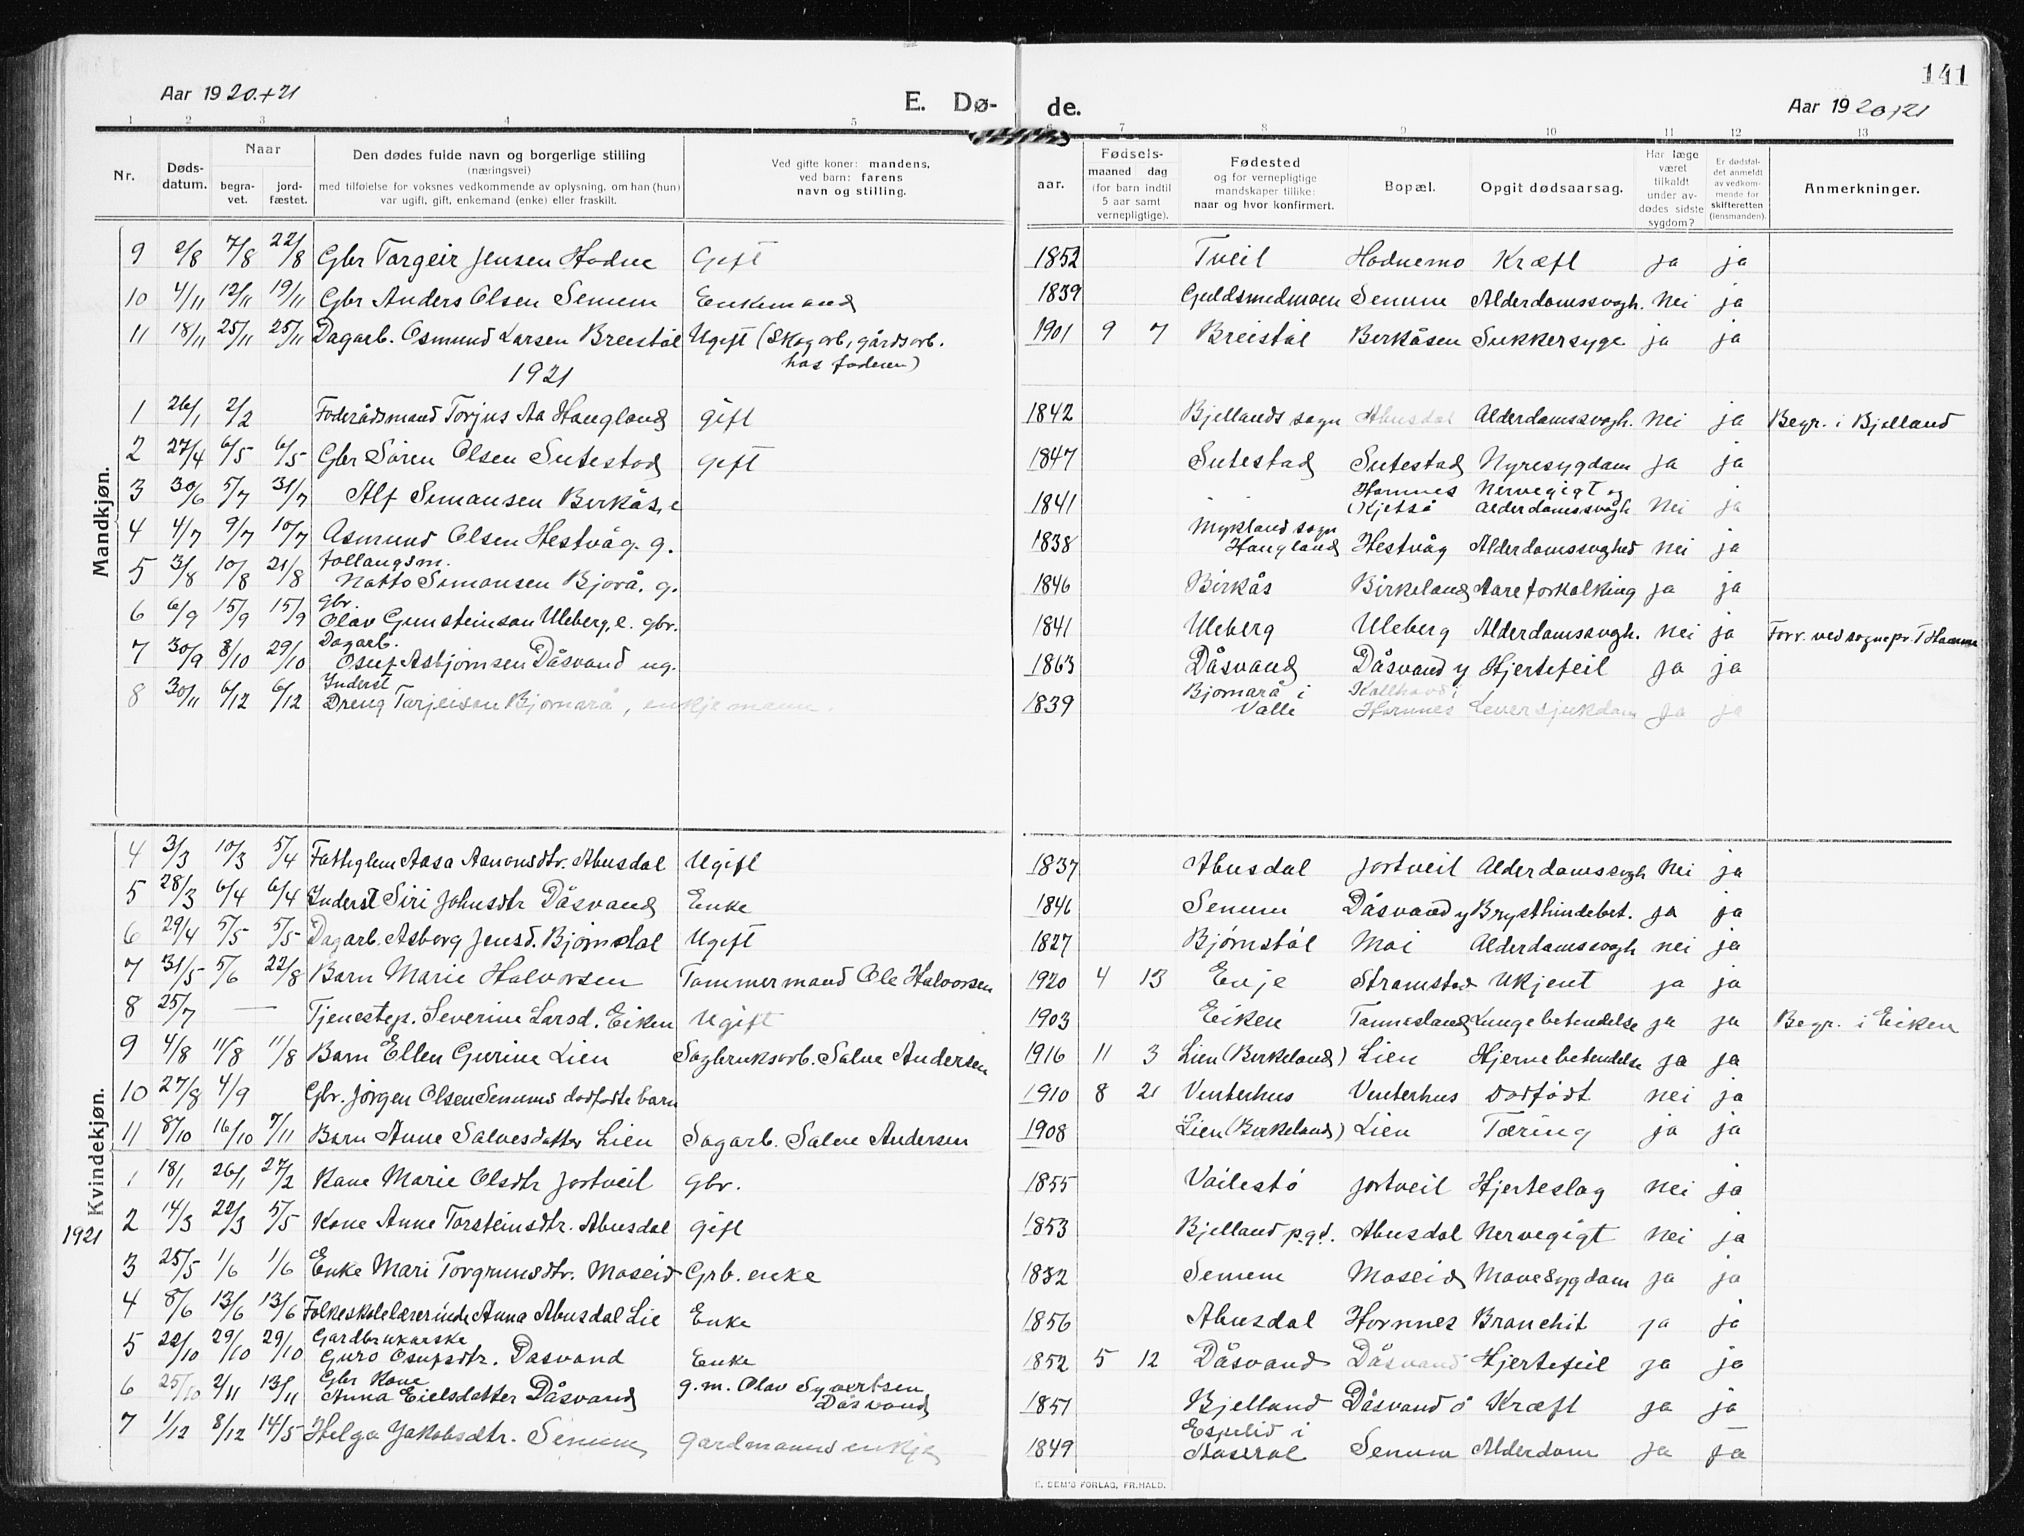 141
Aar 1920.+21
E. Dø-
de.
Aar 1920+21
1 2 3 4 5 6 7 8 9 10 11 12 13
Nr.
Døds-
datum.
Naar
begra-
vet.
jord-
fæstet.
Den dødes fulde navn og borgerlige stilling
(næringsvei)
med tilføielse for voksnes vedkommende av oplysning, om han (hun)
var ugift, gift, enkemand (enke) eller fraskilt.
Ved gifte koner: mandens,
ved barn: farens
navn og stilling.
aar.
Fødsels-
maaned dag
(for barn indtil
5 aar samt
vernepligtige).
Fødested
og for vernepligtige
mandskaper tillike:
naar og hvor konfirmert.
Bopæl.
Opgit dødsaarsag.
Har læge
været
tilkaldt
under av-
dødes sidste
sygdom?
Er dødsfal-
det anmeldt
av vedkom-
mende for
skifteretten
(lensmanden).
Anmerkninger.
Mandkjøn.
9 2/8 7/8 22/8 Gbr Targeir Jensen Hodne Gift 1852 Tveit Hodnemo Kræft ja ja
10 4/11 12/11 19/11 Gbr Anders Olsen Senum Enkemand 1839 Guldsmedmoen Senum Alderdomssvagh. Nei ja
11 18/11 25/11 25/11 Dagarb. Osmund Larsen Breistøl Ugift (Skogarb, gårdsarb. 1901 9 7 Breistøl Berkåsen Sukkersyge ja ja
hos faderen)
1921
1 26/1 2/2 Foderådsmand Torjus Aa Haugland gift 1842 Bjellands sogn Abusdal Alderdomssvagh. Nei ja Begr. i Bjelland
2 27/4 6/5 6/5 Gbr Søren Olsen Sutestad gift 1847 Sutestad Sutestad Nyresygdom ja ja
3 30/6 5/7 31/7 Alf Simonsen Berkås, e 1841 Hornnes Kjetså Nervegigt og Alderdomssvagh Nei ja
4 4/7 9/7 10/7 Asmund Olsen Hestvåg. g. 1838 Mykland sogn Haugland Hestvåg Alderdomssvaghed Nei ja
5 3/8 10/8 21/8 Follaugsm.
Notto Simonsen Bjorå. g. 1846 Birkås Birkeland Aareforkalking ja ja
6 6/9 15/9 15/9 Gbr.
Olav Gunsteinson Uleberg, e. gbr. 1841 Uleberg Uleberg Alderdomssvagh. Nei ja Forr. ved sognepr. T Hamme
7 30/9 8/10 29/10 Dagarb.
Osuf Asbjørnsen Dåsvand ug. 1863 Dåsvand Dåsvand y Hjertefeil ja ja
8 30/11 6/12 6/12 Inderst
Dreng Tarjeison Bjørnarå, enkjemann. 1839 Bjørnarå i Valle Hornnes Leversjukdom ja ja
Kvindekjøn.
4 3/3 10/3 5/4 Fattiglem Aasa Aanonsdtr. Abusdal Ugift 1837 Abusdal Jortveit Alderdomssvagh Nei ja
5 28/3 6/4 6/4 Inderst Siri Johnsdtr Dåsvand Enke 1846 Senum Dåsvand y Brysthindebet. ja ja
6 29/4 5/5 5/5 Dagarb. Asborg Jensd. Bjørnstøl Ugift 1827 Bjørnstøl Moi Alderdomssvagh nei ja
7 31/5 5/6 22/8 Barn Marie Halvorsen Tømmermand Ole Halvorsen 1920 4 13 Evje Strømstad Ukjent ja ja
8 25/7 — Tjenestep. Severine Larsd. Eiken Ugift 1903 Eiken Tannesland Lungebetendelse ja ja Begr. i Eiken
9 4/8 11/8 11/8 Barn Ellen Gurine Lien Sagbruksarb. Salve Andersen 1916 11 3 Lien (Birkeland) Lien Hjernebetendelse ja ja
10 27/8 4/9 Gbr. Jørgen Olsen Senums dødfødte barn 1910 8 21 Venterhus Venterhus Dødfødt nei ja
11 8/10 16/10 7/11 Barn Anne Salvesdatter Lien Sagarb. Salve Andersen 1908 Lien (Birkeland) Lien Tæring ja ja
1921
1 18/1 26/1 27/2 Kone Marie Olsdtr Jortveit Gbr. 1855 Våilestø Jortveit Hjerteslag Nei ja
2 14/3 22/3 5/5 Kone Anne Torsteinsdtr. Abusdal gift 1853 Bjelland pgd. Abusdal Nervegigt Nei ja
3 25/5 1/6 1/6 Enke Mari Torgrimsdtr. Moseid Grb. enke 1832 Senum Moseid Mavesygdom ja ja
4 8/6 13/6 13/6 Folkeskolelærerinde Anna Abusdal Lie Enke 1856 Abusdal Hornnes Bronchit ja ja
5 22/10 29/10 29/10 Gardbrukarske
Guro Osufsdtr. Dåsvand Enke 1852 5 12 Dåsvand Dåsvand Hjertefeil ja ja
6 25/10 2/11 13/11 Gbr Kone
Anna Eielsdatter Dåsvand g.m. Olav Syvertsen Dåsvand 1851 Bjelland Dåsvand ø Kræft ja ja
7 1/12 8/12 14/5 Helga Jakobsdtr. Senum gardmanns enkje 1849 Espelid i Åseral Senum Alderdom ja ja
E. SEM'S FORLAG, FR.HALD.